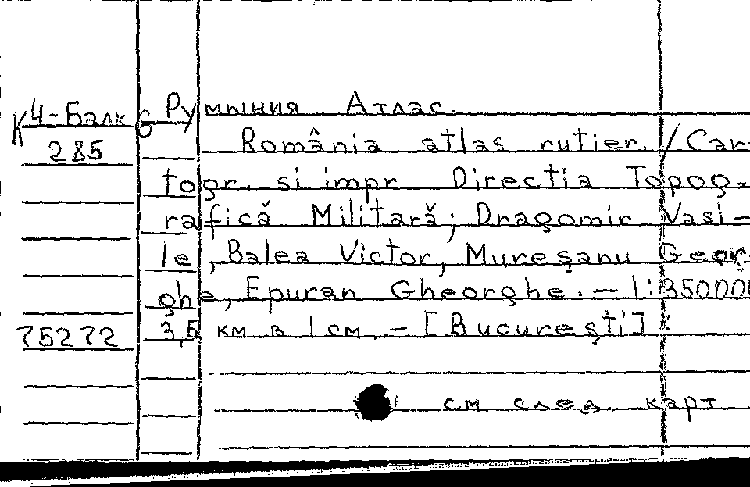 К 4-Балк 6 Румыния Атлас.
285 România atlas rutier. / Car-
togr. si impr. Directia Topog-
rafică Militară; Dragomir Vasi-
le, Balea Victor, Mureşanu Geor-
ghe, Epuran Gheorghe. — 1:350000
75272 3,5 км в 1 см. — [Bucureşti]:
см след. карт